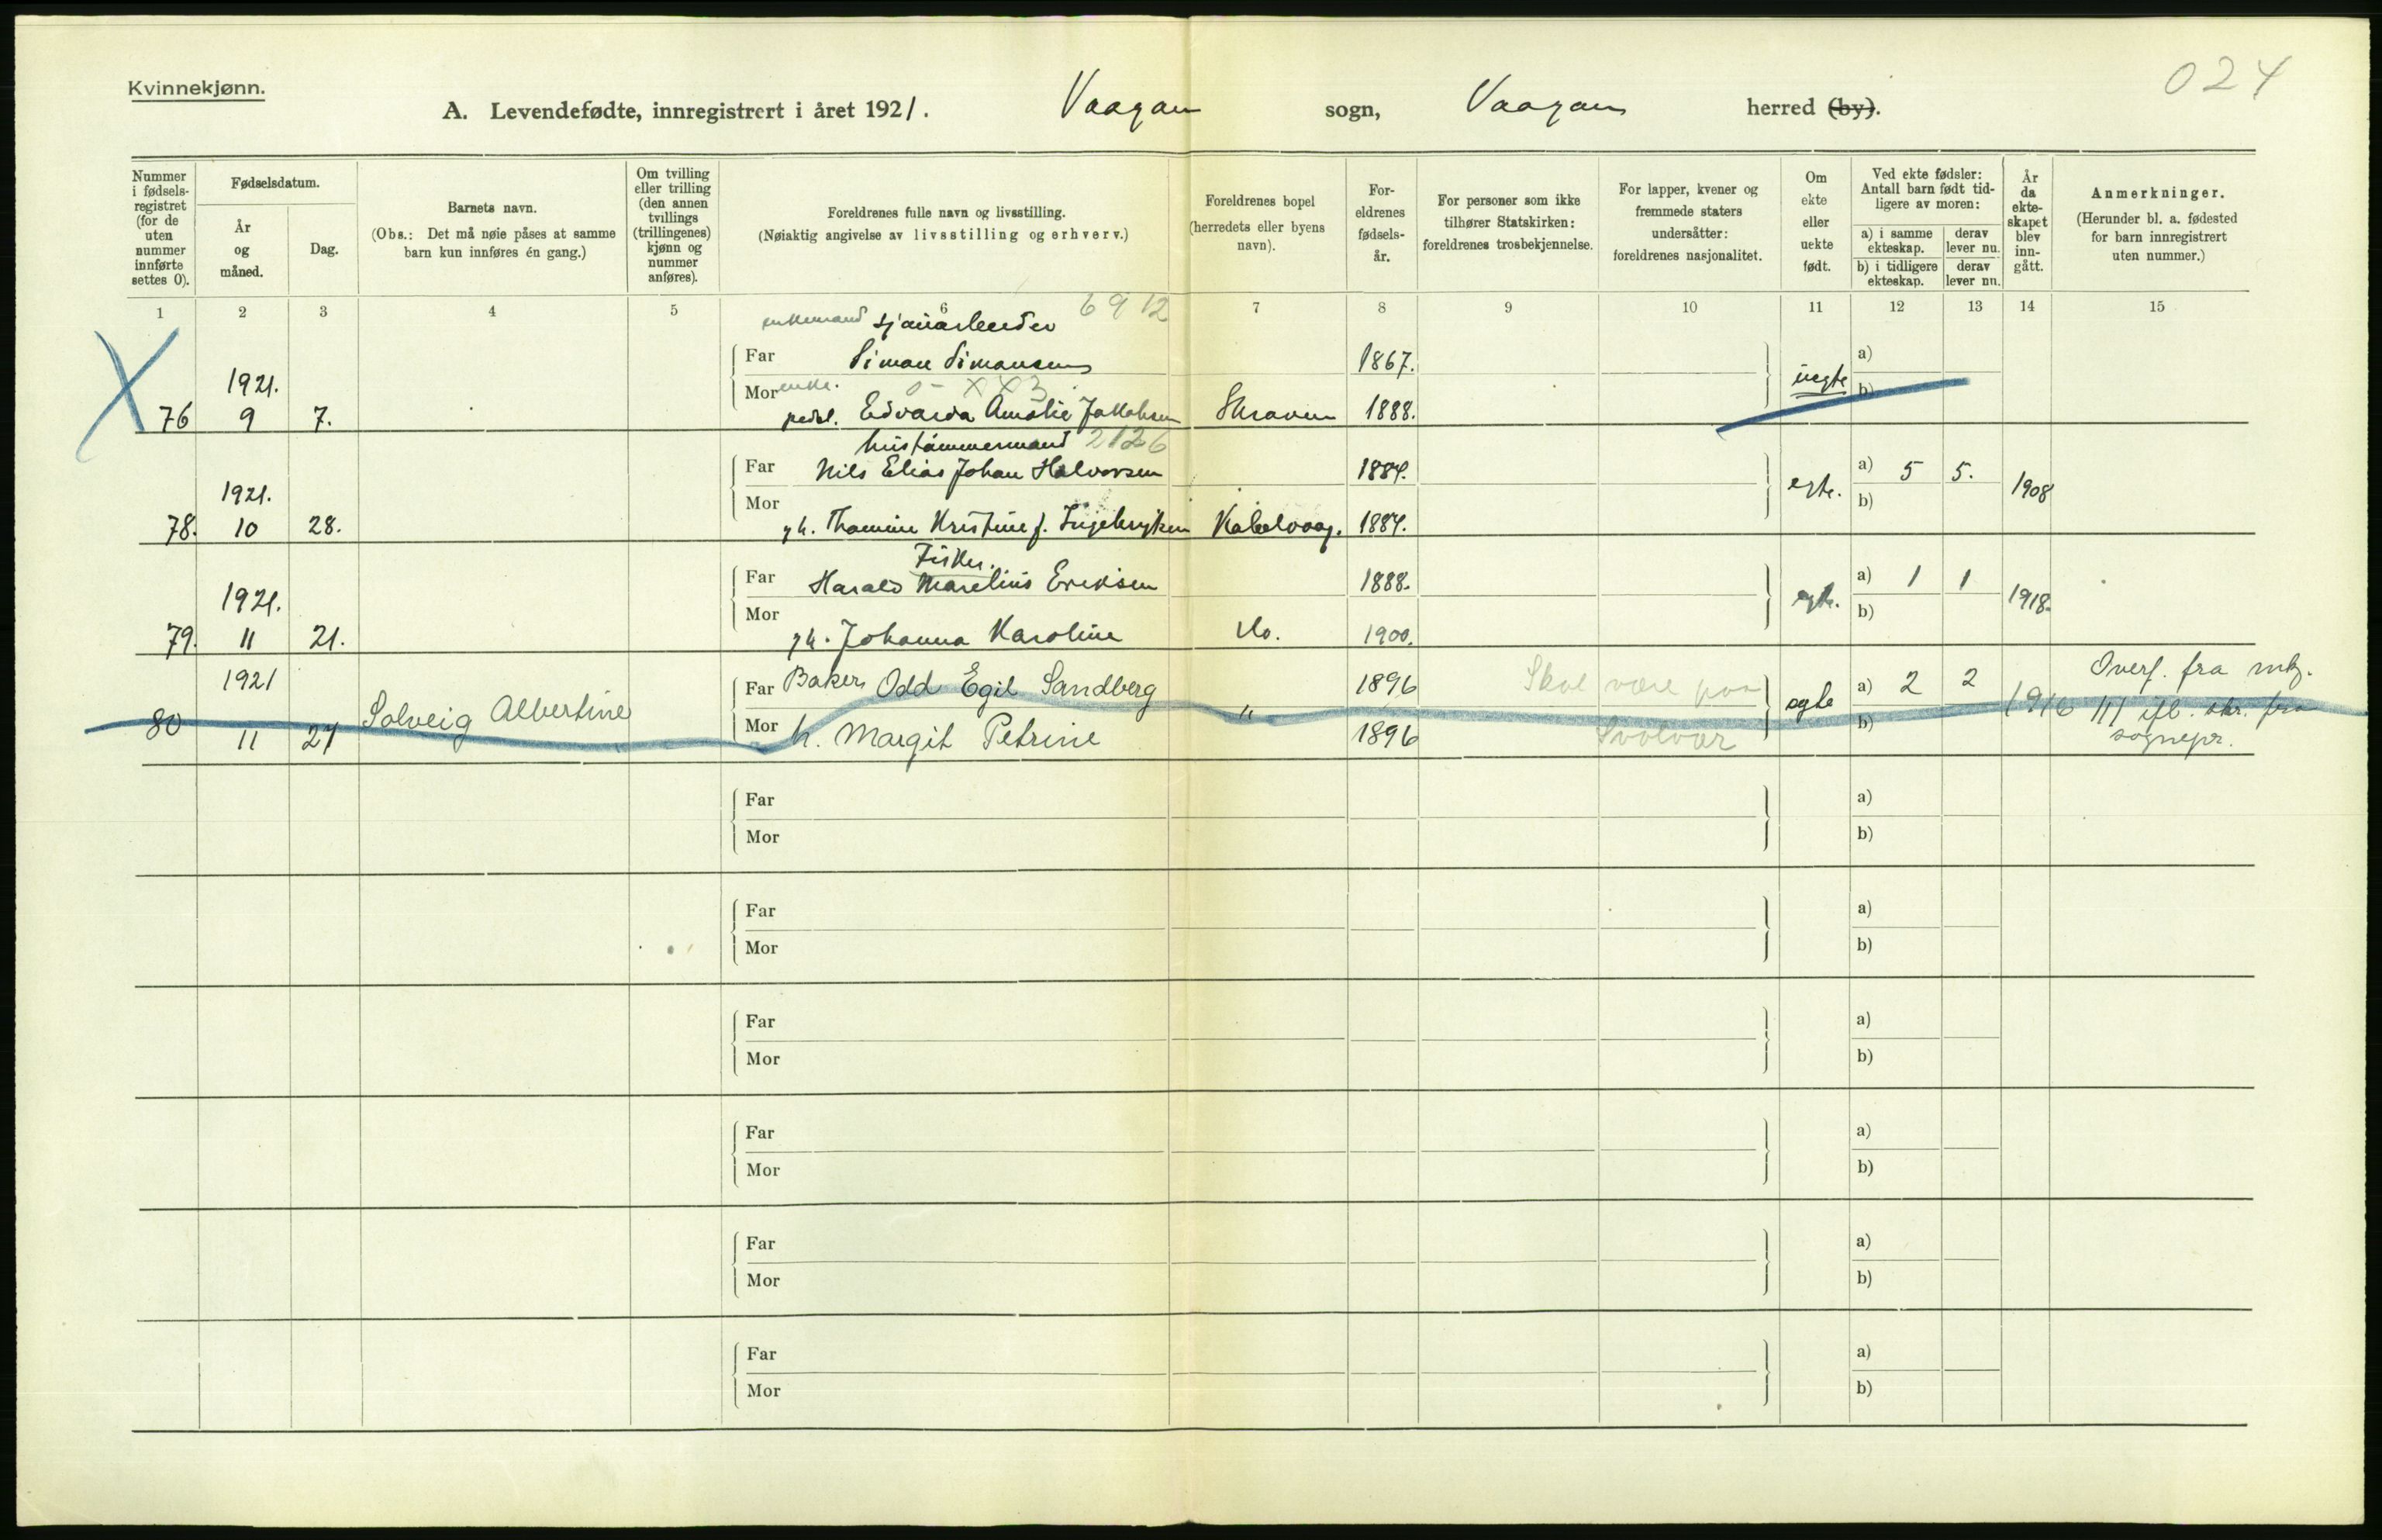 024
Kvinnekjønn.
A. Levendefødte, innregistrert i året 1921. Vaagan sogn, Vaagan herred (by).
Nummer i fødsels-registret (for de uten nummer innførte settes 0).
Fødselsdatum.
År og måned.
Dag.
Barnets navn.
(Obs.: Det må nøie påses at samme barn kun innføres én gang.)
Om tvilling eller trilling (den annen tvillings (trillingenes) kjønn og nummer anføres).
Foreldrenes fulle navn og livsstilling.
(Nøiaktig angivelse av livsstilling og erhverv.)
Foreldrenes bopel (herredets eller byens navn).
For-eldrenes fødsels-år.
For personer som ikke tilhører Statskirken: foreldrenes trosbekjennelse.
For lapper, kvener og fremmede staters undersåtter: foreldrenes nasjonalitet.
Om ekte eller uekte født.
Ved ekte fødsler: Antall barn født tid-ligere av moren:
a) i samme ekteskap.
derav lever nu.
b) i tidligere ekteskap.
derav lever nu.
År da ekte-skapet blev inn-gått.
Anmerkninger.
(Herunder bl. a. fødested for barn innregistrert uten nummer.)
1 2 3 4 5 6 7 8 9 10 11 12 13 14 15
enkemand sjauarbeider 6 9 12
Far Simon Simonsen 1867. a)
1921. Mor enke. 0 - X X 3 uegte b)
76 9 7. Edvarda Amalie Jakobsen Skraaven 1888.
hustømmermand 2126
Far Nils Elias Johan Halvorsen 1884. a) 5 5.
1921. Mor egte. b) 1908
78. 10 28. gh. Thomine Kristine f. Ingebrigtsen Kabelvaag. 1884.
Fisker.
Far Harald Marelius Eriksen 1888. a) 1 1
1921. Mor egte. b) 1918.
79. 11 21. gh. Johanna Karoline do. 1900.
1921 Far Baker Odd Egil Sandberg 1896 Skal være paa a) 2 2 Overf. fra mkj.
80 Solveig Albertine Mor " egte b) 1916 111 ifl. skr. fra
11 21 h. Margit Petrine 1896 Svolvær sognepr.
Far a)
Mor b)
Far a)
Mor b)
Far a)
Mor b)
Far a)
Mor b)
Far a)
Mor b)
Far a)
Mor b)